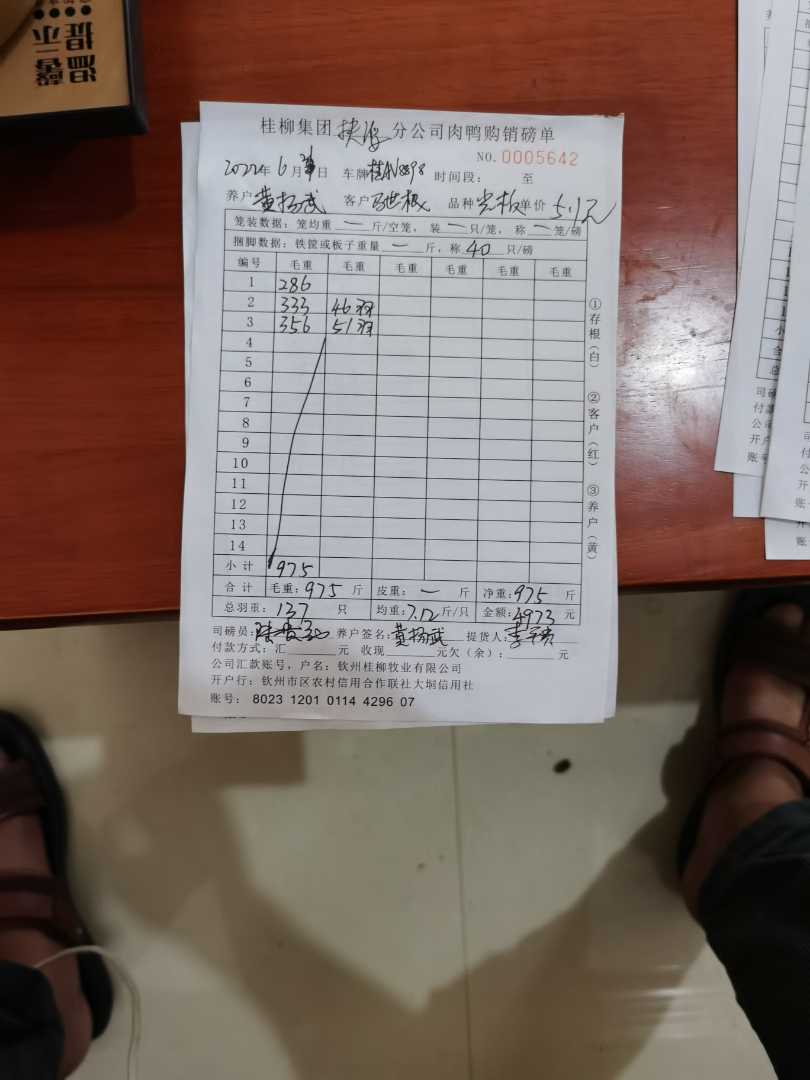 温馨提示
桂柳集团分公司肉鸭购销磅单
NO.0005642
2022年6月 日 车牌 时间段: 至
养户黄扬武 客户马世极 品种光板单价5.1元
笼装数据:笼均重一斤/空笼,装一只/笼,称一笼/磅
捆脚数据:铁筐或板子重量一斤,称40只/磅
编号 毛重 毛重 毛重 毛重 毛重 毛重
1 286
2 333 46羽
3 356 51羽
4
5
6
7
8
9
10
11
12
13
14
小计 975
合计 毛重:975斤 皮重:一斤 净重:975斤
总羽重:137只 均重:7.12斤/只 金额:4973元
司磅员: 养户签名:黄扬武 提货人:
付款方式:汇 元 收现 元欠(余): 元
公司汇款账号,户名:钦州桂柳牧业有限公司
开户行:钦州市区农村信用合作联社大垌信用社
账号:8023 1201 0114 4296 07
①存根(白) ②客户(红) ③养户(黄)